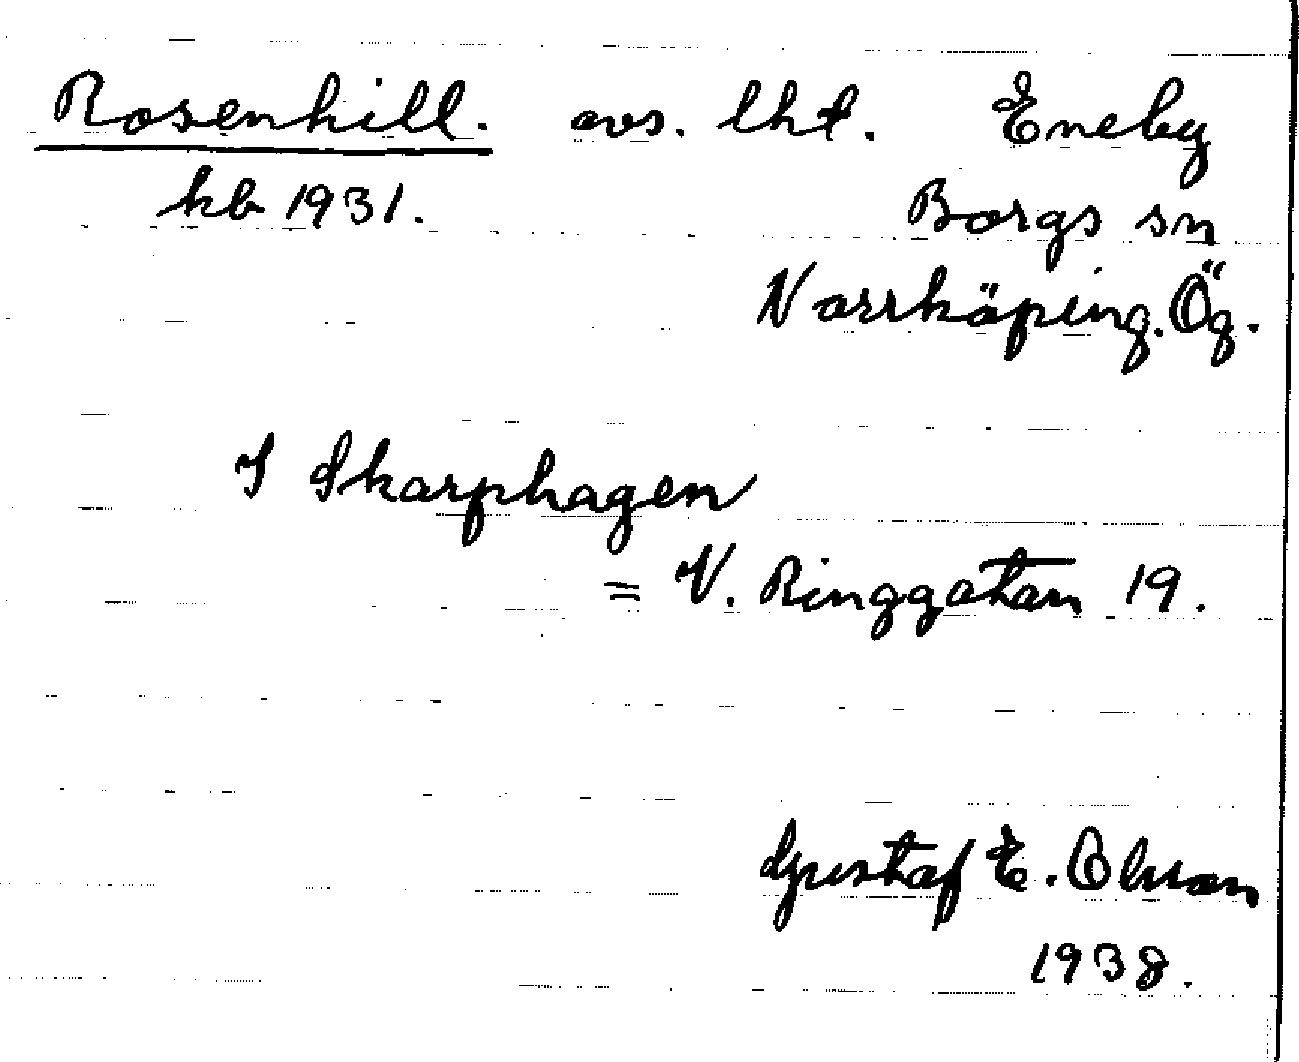 Rosenhill. avs. lht. Eneby
kb 1931. Borgs sn
Norrköping. Ög.
I Skarphagen
= V. Ringgatan 19.
Gustaf E. Olsson
1938.